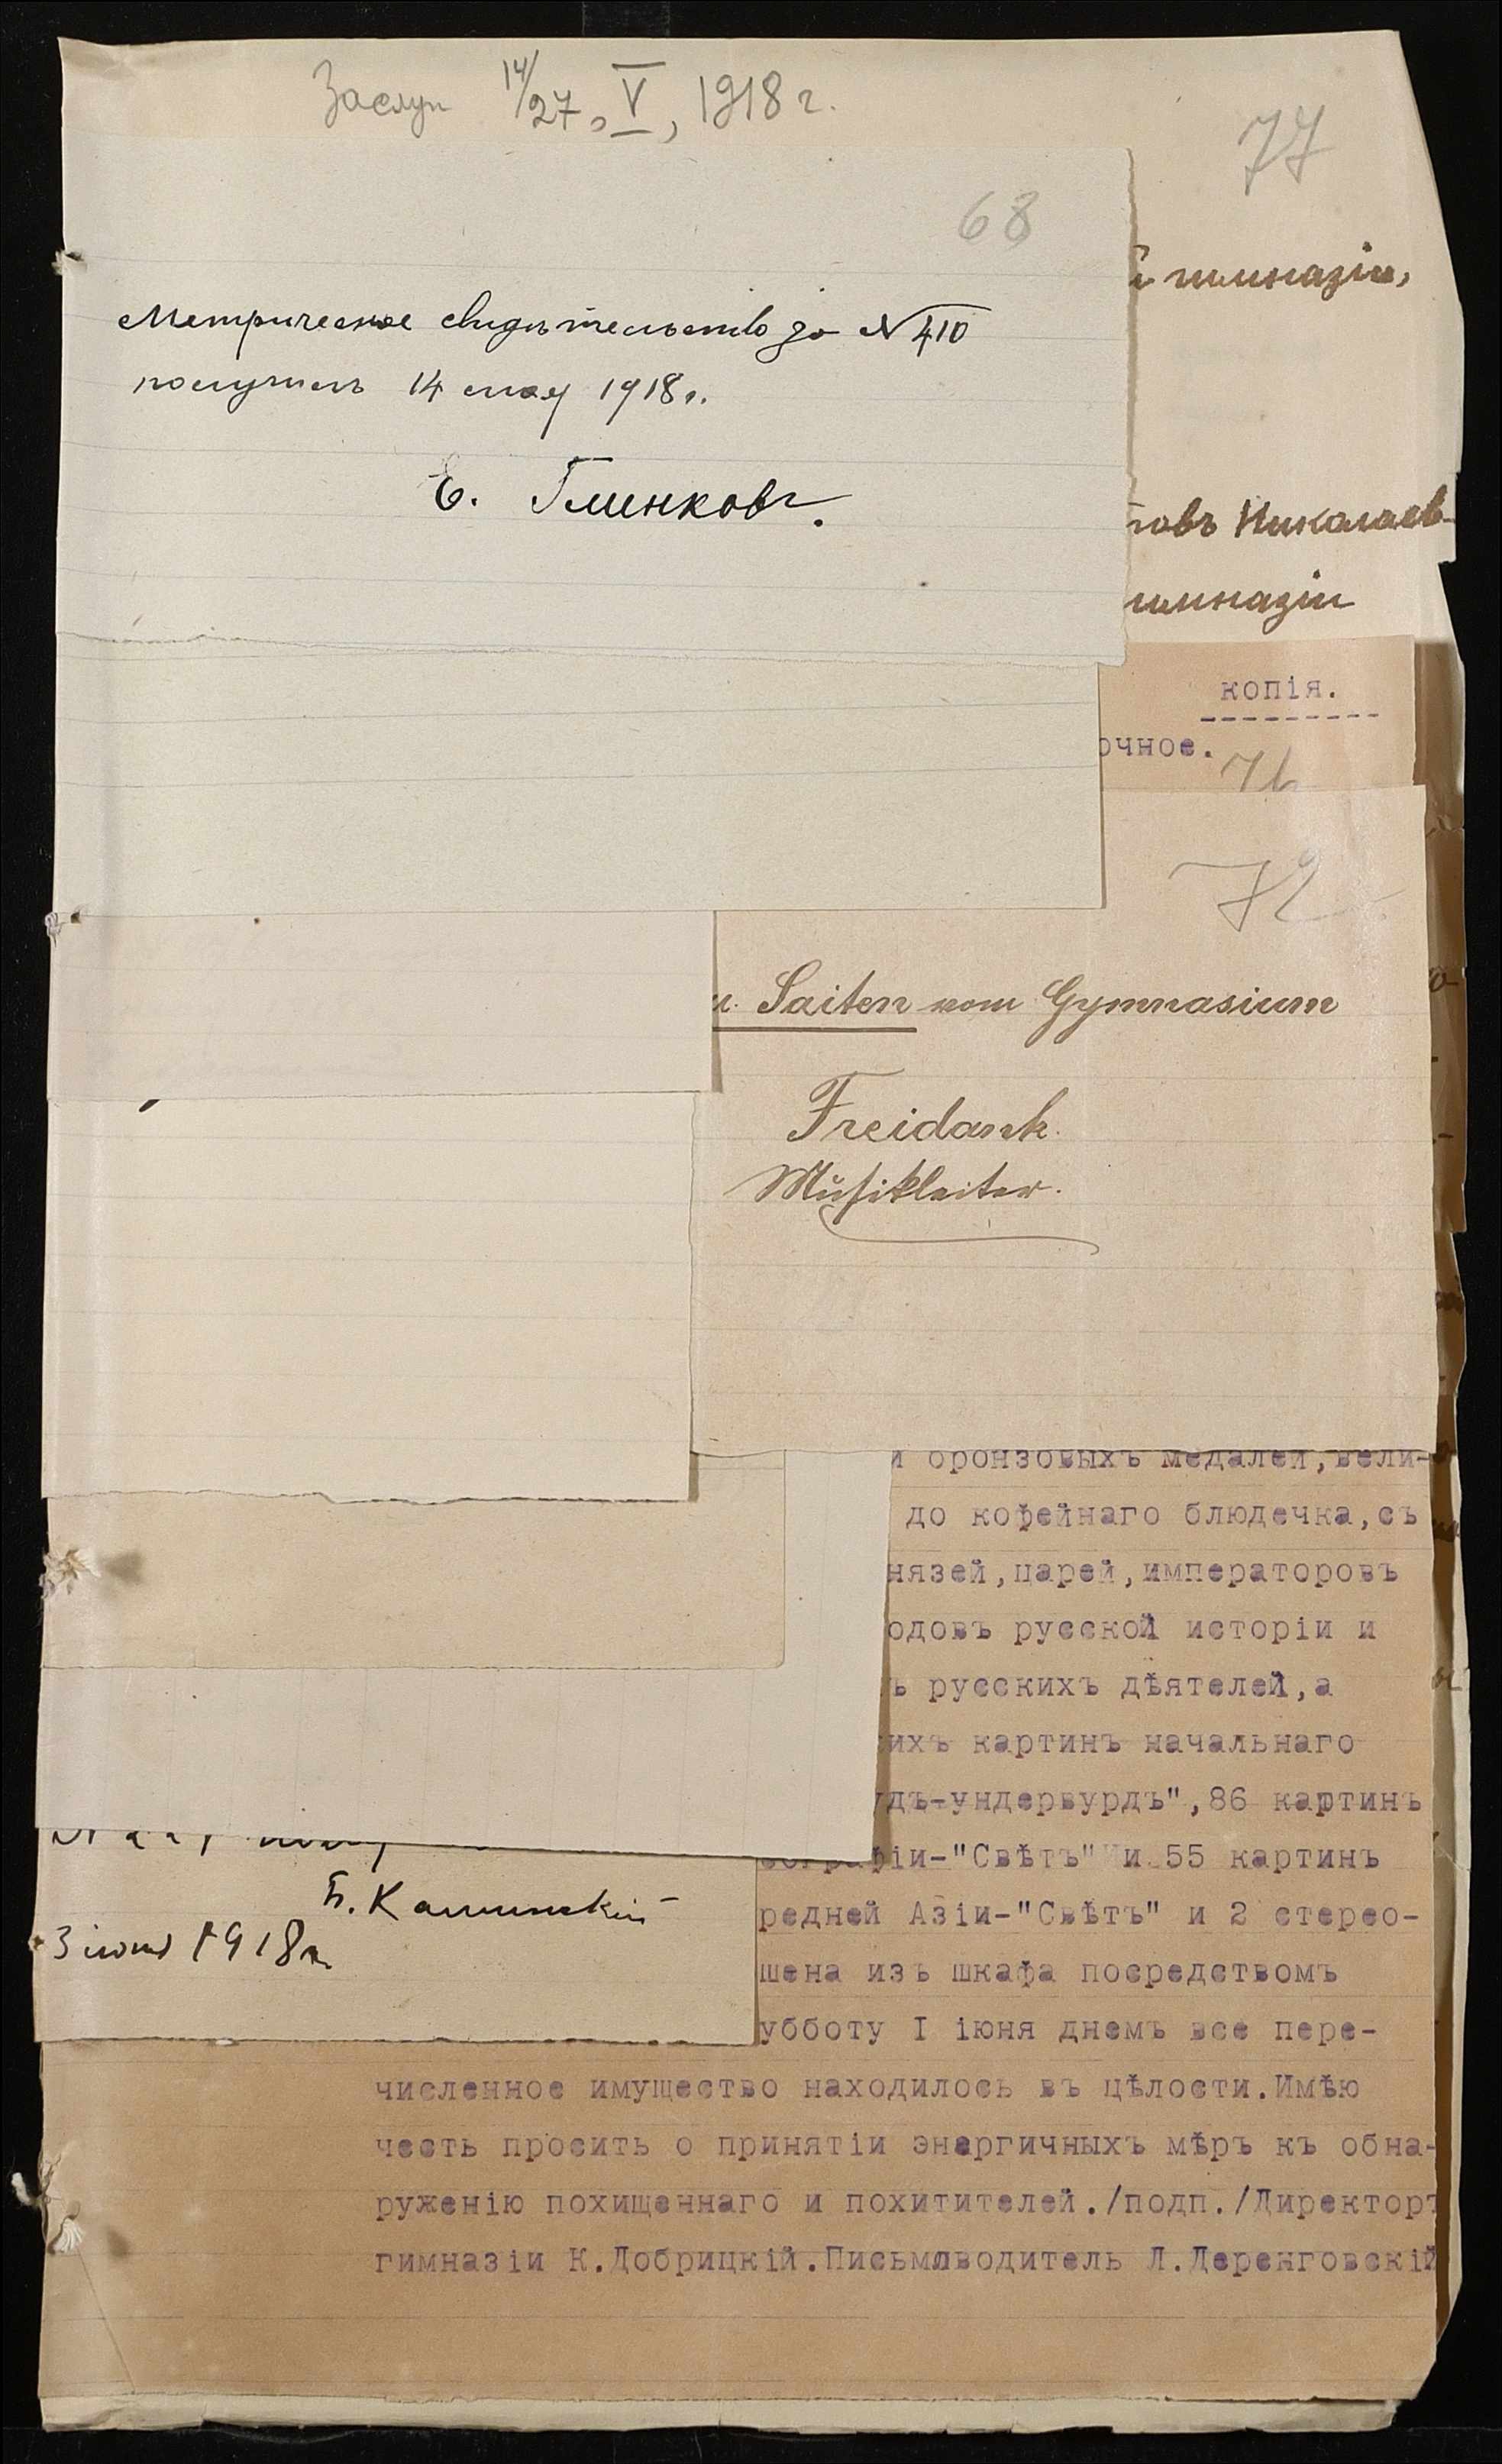 14/27, V, 1918 г.
77
68
Метрическое свидѣтельство за № 410
получилъ 14 мая 1918 г.
Е. Глинковъ.
гимназіи,
товъ Николаев-
гимназіи
копія.
очное.
76
72
u. Saiten vom Gymnasium
Freidank.
Musikleiter.
и бронзовыхъ медалей,вели-
до кофейнаго блюдечка,съ
нязей,царей,императоровъ
одовъ русской исторіи и
ъ русскихъ дѣятелей,а
ихъ картинъ начальнаго
удъ-ундервурдъ",86 картинъ
ографіи-"Свѣтъ" и 55 картинъ
Б. Калинскій
редней Азіи-"Свѣтъ" и 2 стерео-
3 іюня 1918 г.
шена изъ шкафа посредствомъ
убботу I іюня днемъ все пере-
численное имущество находилось въ цѣлости.Имѣю
честь просить о принятіи энергичныхъ мѣръ къ обна-
руженію похищеннаго и похитителей./подп./Директоръ
гимназіи К.Добрицкій.Письмоводитель Л.Деренговскій